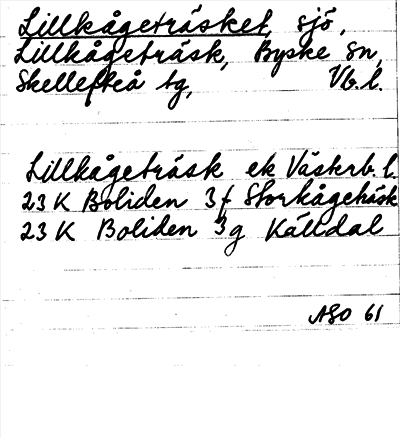 Lillkågeträsket, sjö,
Lillkågeträsk, Byske sn,
Skellefteå tg, Vb.l.
Lillkågeträsk ek Västerb. l.
23 K Boliden 3f Storkågeträsk
23 K Boliden 3g Källdal
ASO 61